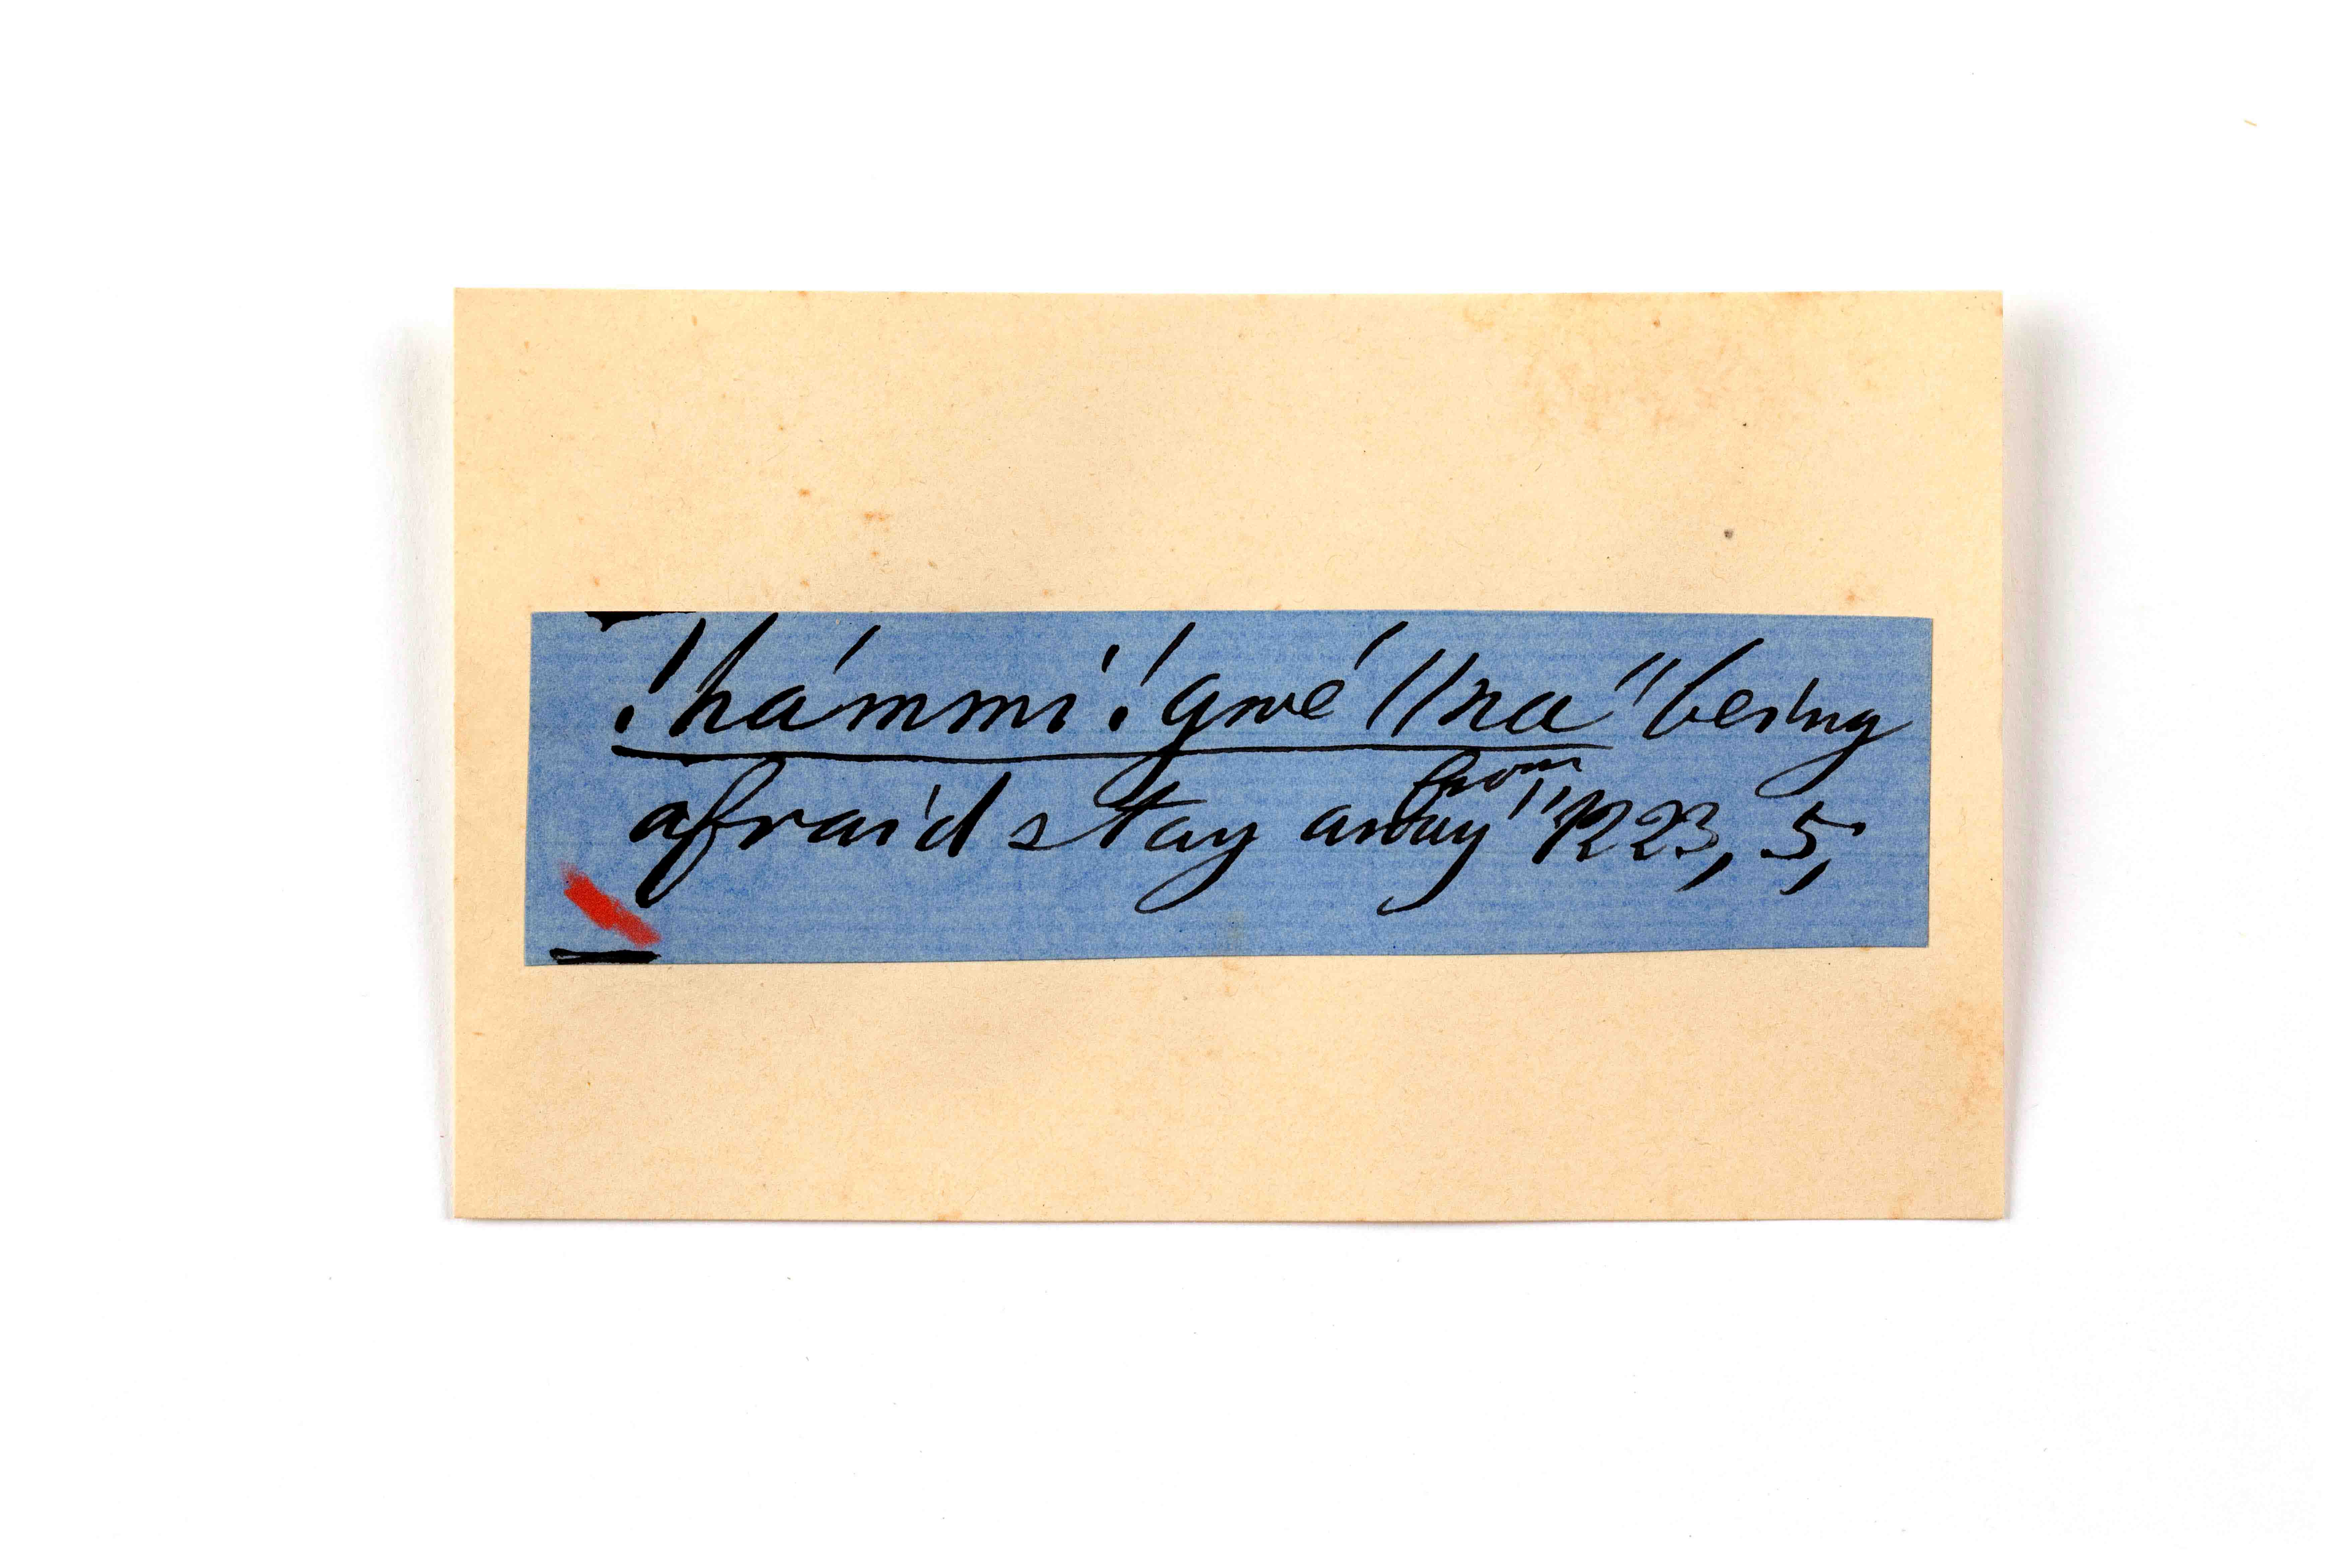 !hámmi !gwé //na "being
afraid stay away from" 1223, 5,